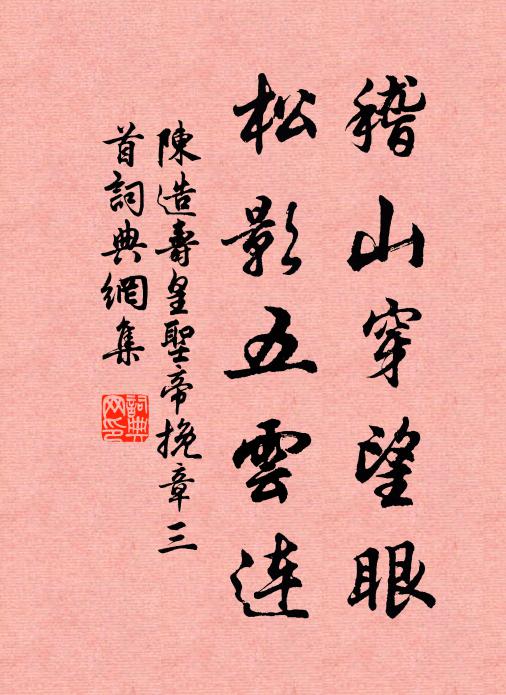 稽山穿望眼
松影五雲連
陳造壽皇聖帝挽章三
首詞典網集
詞典網印